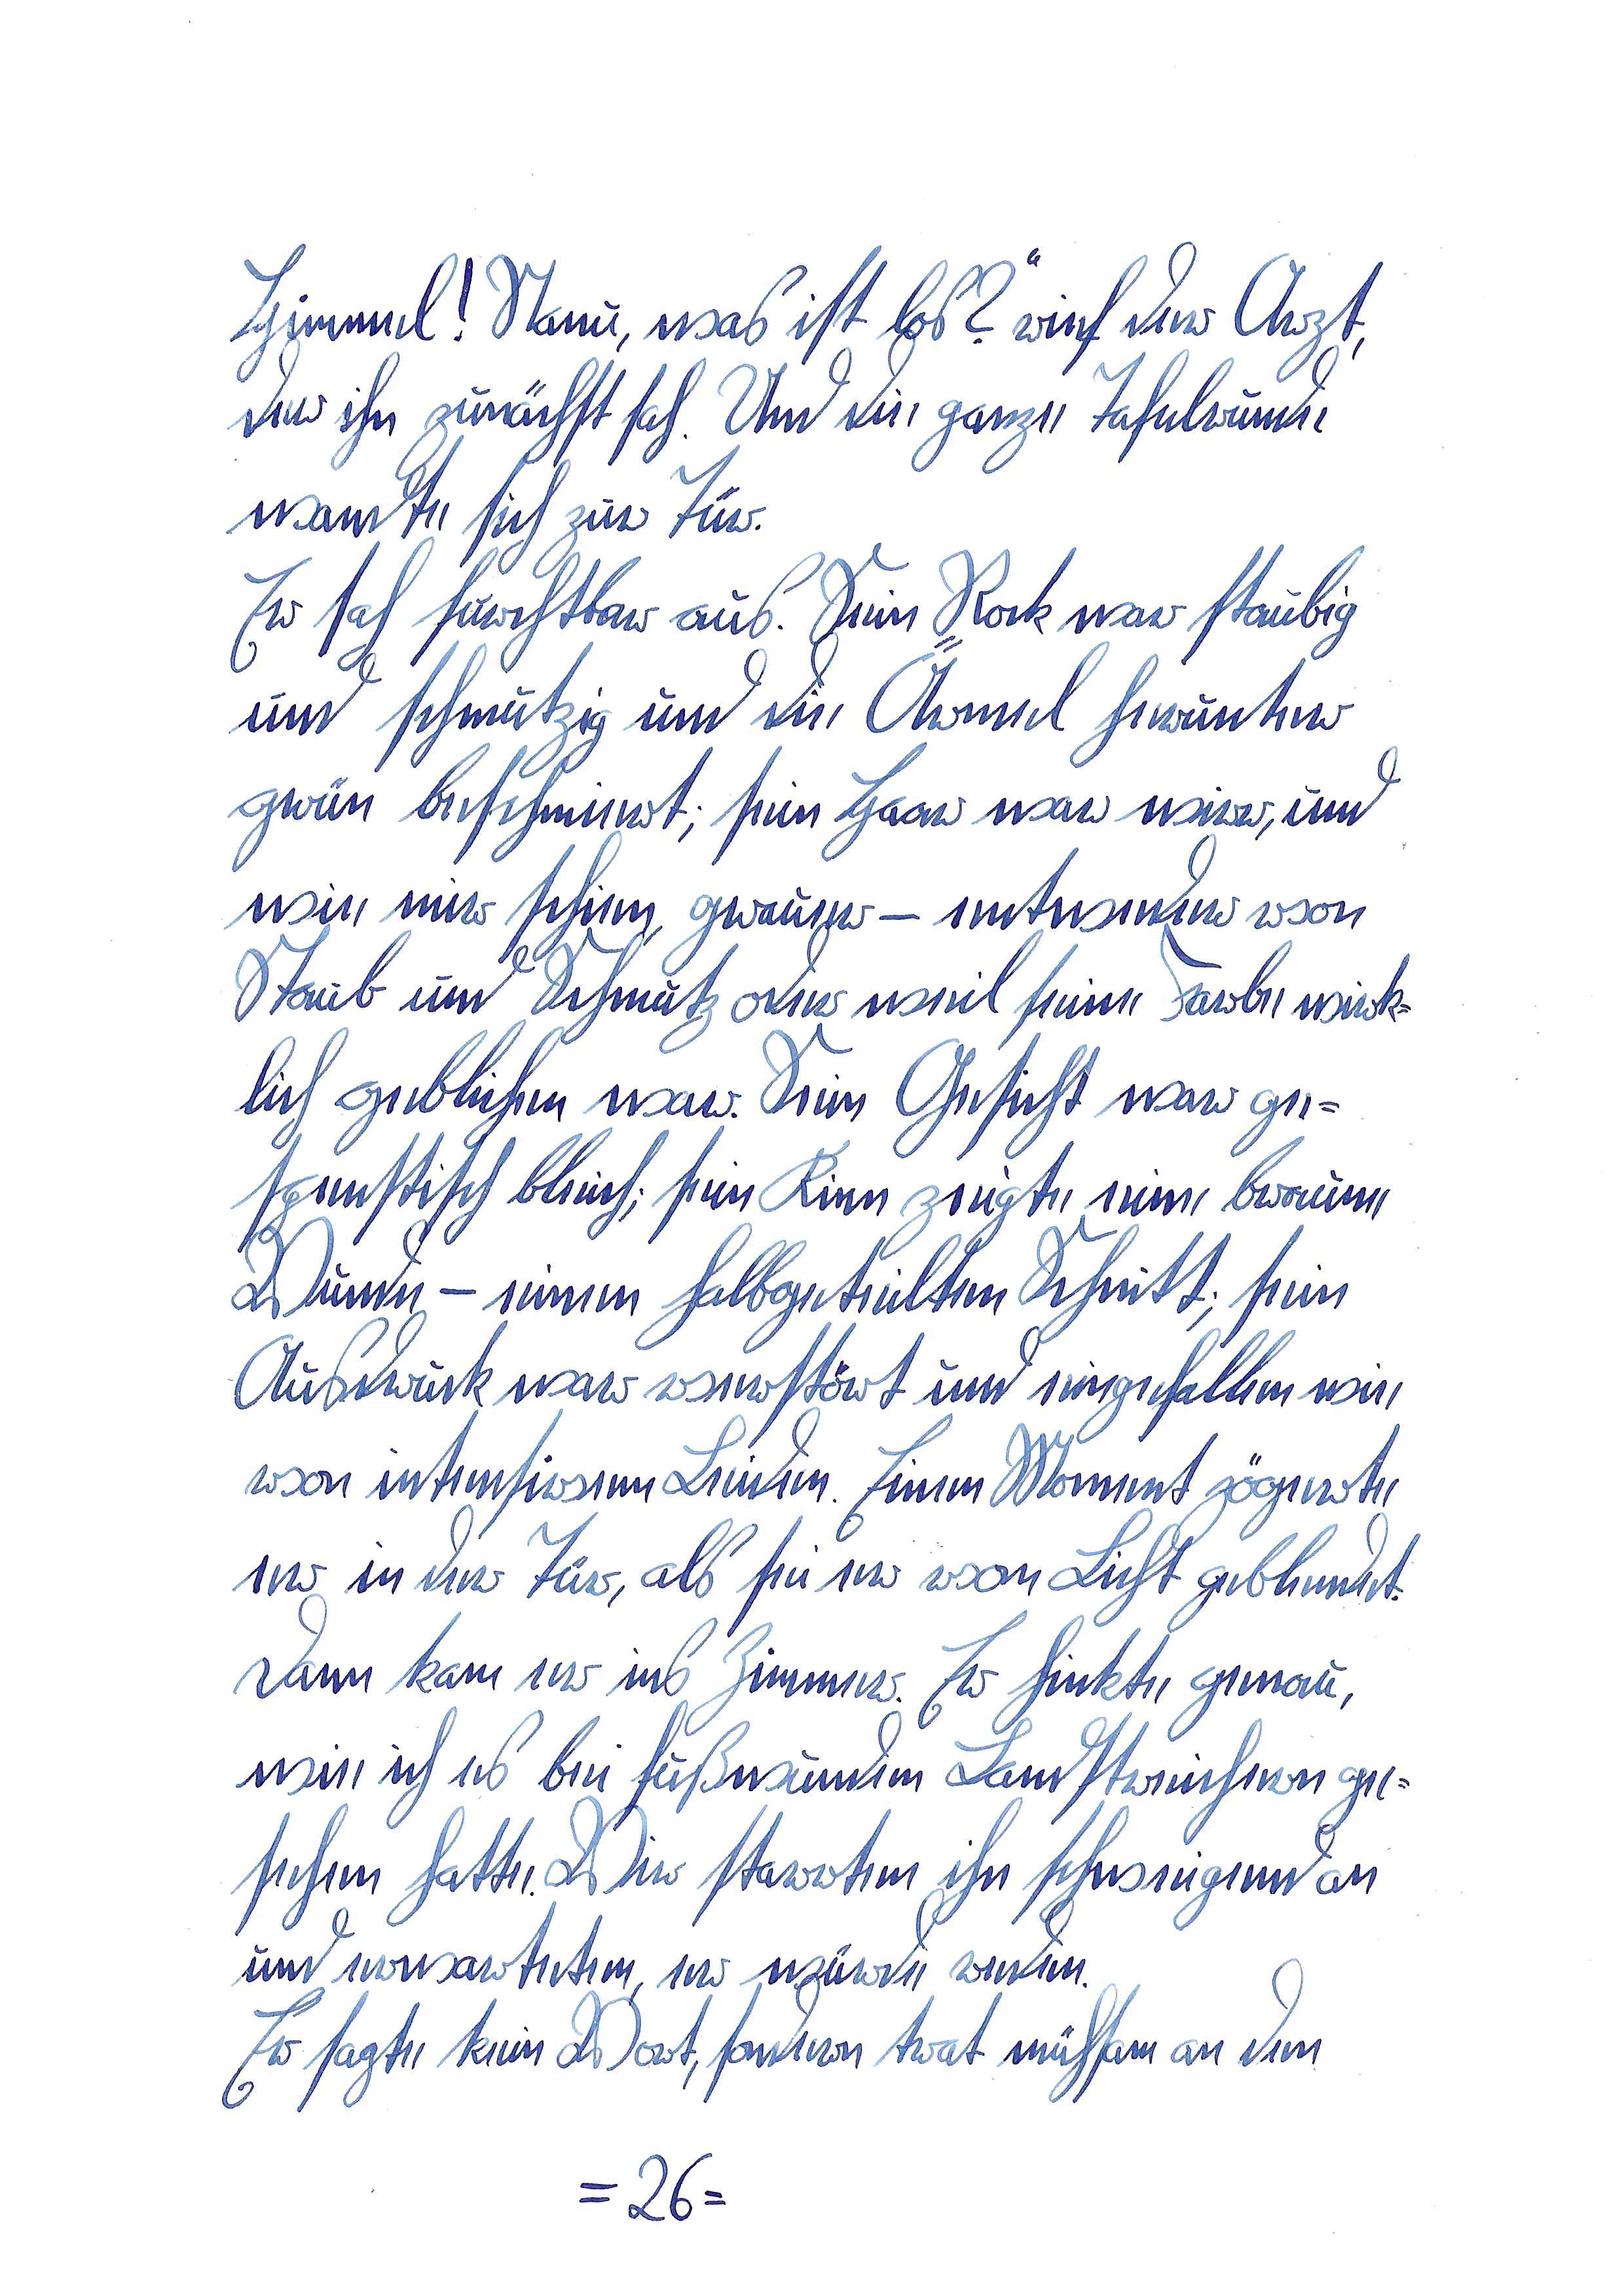 Himmel! Mann, was ist los?“ rief der Arzt,
der ihn zunächst sah. Und die ganze Tafelrunde
wandte sich zur Tür.
Er sah furchtbar aus. Sein Rock war staubig
und schmutzig und die Ärmel herunter
grün beschmiert; sein Haar war wirr, und
wie mir schien, grauer – entweder von
Staub und Schmutz oder weil seine Farbe wirk=
lich geblichen war. Sein Gesicht war ge=
spenstisch bleich; sein Kinn zeigte eine braune
Wunde – einen halbgeteilten Schnitt; sein
Ausdruck war verstört und eingefallen wie
von intensivem Leiden. Einen Moment zögerte
er in der Tür, als sei er vom Licht geblendet.
Dann kam er ins Zimmer. Er hinkte genau,
wie ich es bei fußwunden Landstreichern ge=
sehen hatte. Wir starrten ihn schweigend an
und erwarteten, er würde reden.
Er sagte kein Wort, sondern trat mühsam an den
=26=